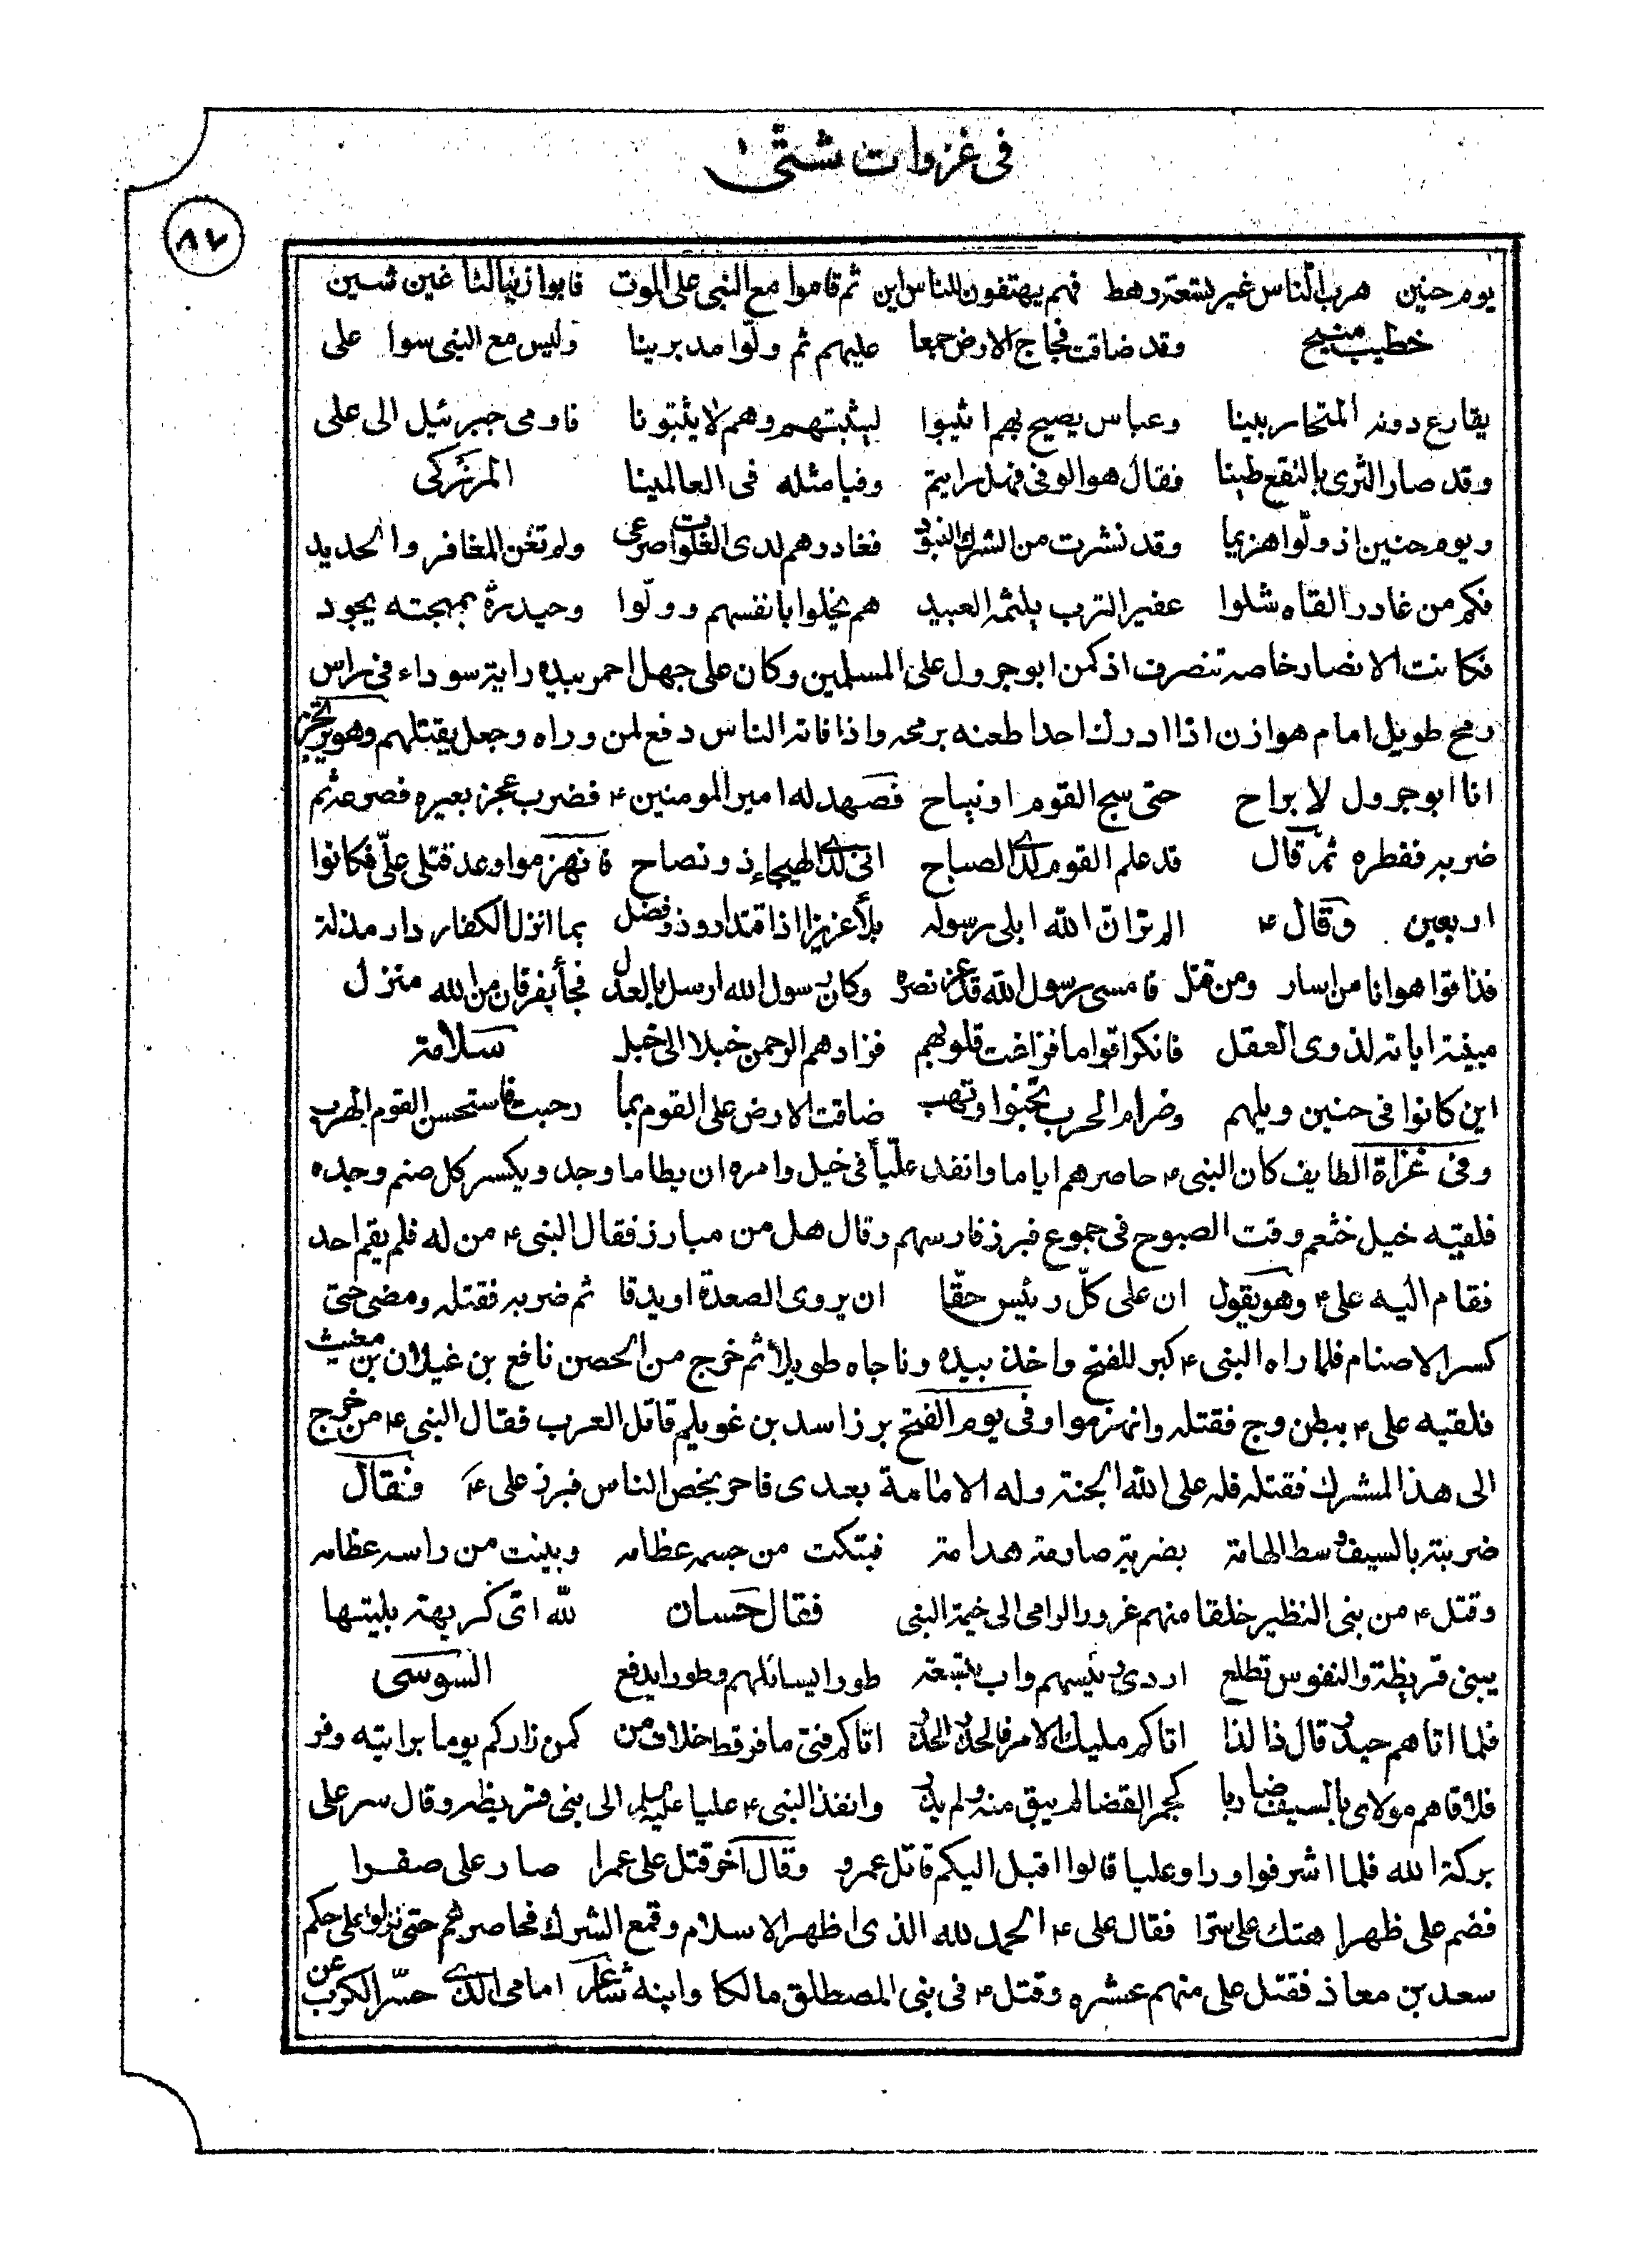 فى غزوات شتّى
٨٧
يوم حنين هرب الناس غير تسعة رهط فهم يهتفون للناس اين ثم قاموا مع النبى على الموت فابوا زينا لنا غين شين
خطيب منبج وقد ضاقت فجاج الارض جمعا عليهم ثم ولّوا مدبرينا وليس مع النبى سوا على
يقارع دونه المتحاربينا وعباس يصيح بهم اثيبوا ليثبتهم وهم لا يثبتونا فاومى جبرئيل الى على
وقد صار الثرى بالنقع طينا فقال هو الوفى فهل رايتم وفيا مثله فى العالمينا المرزكى
ويوم حنين اذ ولّوا هزيما وقد نشرت من الشرك البنود فغادرهم لدى الفلوات صرعى ولم تغن المغافر والحديد
فكم من غادر القاه شلوا عفير الترب يلثمه العبيد هم بخلوا بانفسهم وولّوا وحيدرة بمهجته يجود
فكانت الانصار خاصة تنصرف اذ كمن ابو جرول على المسلمين وكان على جمل احمر بيده راية سوداء فى راس
رمح طويل امام هوازن اذا ادرك احدا طعنه برمحه واذا فاته الناس دفع لمن وراه وجعل يقتلهم وهو يرتجز
انا ابو جرول لا براح حتى نبيح القوم او نباح فصهد له امير المومنين ؏ فضرب عجز بعيره فصرعه ثم
ضربه فقطره ثم قال قد علم القوم لدى الصباح انى لدى الهيجاء ذو نصاح فانهزموا وعد قتلى علىّ فكانوا
اربعين وقال ؏ الم تر انّ الله ابلى رسوله بلأ عزيز اذا قتدار وذو فضل بما انزل الكفار دار مذلة
فذاقوا هوانا من اسار ومن قتل فامسى رسول الله قد عز نصره وكان رسول الله ارسل بالعدل فجأ بفرقان من الله منزل
مبينة اياته لذوى العقل فانكر اقواما فزاغت قلوبهم فزادهم الرحمن خبلا الى خبل سلامة
اين كانوا فى حنين ويلهم وضرام الحرب تخبوا وتهب ضاقت الارض على القوم بما رحبت فاستحسن القوم الهرب
وفى غزاة الطايف كان النبى ؏ حاصرهم اياما وانفذ علّيأ فى خيل وامره ان يطاما وجد ويكسر كل صنم وجده
فلقيه خيل خثعم وقت الصبوح فى جموع فبرز فارسهم وقال هل من مبارز فقال النبى ؏ من له فلم يقم احد
فقام اليه على ؏ وهو يقول ان على كلّ رئيس حقّا ان يروى الصعدة او يدقا ثم ضربه فقتله ومضى حتى
كسر الاصنام فلما راه النبى ؏ كبر للفتح واخذ بيده وناجاه طويلا ثم خرج من الحصن نافع بن غيلان بن مغيث
فلقيه على ؏ ببطن وج فقتله وانهزموا وفى يوم الفتح برز اسد بن غويلم قاتل العرب فقال النبى ؏ من خرج
الى هذا المشرك فقتله فله على الله الجنة وله الامامة بعدى فاحر نجض الناس فبرز على ؏ فقال
ضربته بالسيف وسط الهامة بضربة صارمة هدامة فبتكت من جسمه عظامه وبينت من راسه عظامه
وقتل ؏ من بنى النظير خلقا منهم غرور الرامى الى خيمة النبى فقال حسان لله اى كريهة بليتها
ببنى قريظة والنفوس تطلع اردى رئيسهم واب بتسعة طورا يسائلهم وطورا يدفع السوسى
فلما اتاهم حيدر قال ذا لذا اتاكم مليك الامر فالحذر الحذر اتاكم فتى ما فر قط خلاف من كمن زاركم يوما برايته وفر
فلاقاهم مولاى بالسيف ضاربا كجمر القضا لم يبق منه ولم يذر وانفذ النبى ؏ عليا عليه السلم الى بنى قريظه وقال سر على
بركة الله فلما اشرفوا وراو عليا قالوا اقبل اليكم قاتل عمرو وقال آخر قتل على عمرا صار على صقرا
فضم على ظهرا هتك على سترا فقال على ؏ الحمد لله الذى اظهر الاسلام وقمع الشرك فحاصرهم حتى نزلوا على حكم
سعد بن معاذ فقتل على منهم عشره وقتل ؏ فى بنى المصطلق مالكا وابنه شاعر امامى الذى حسّر الكرب عن